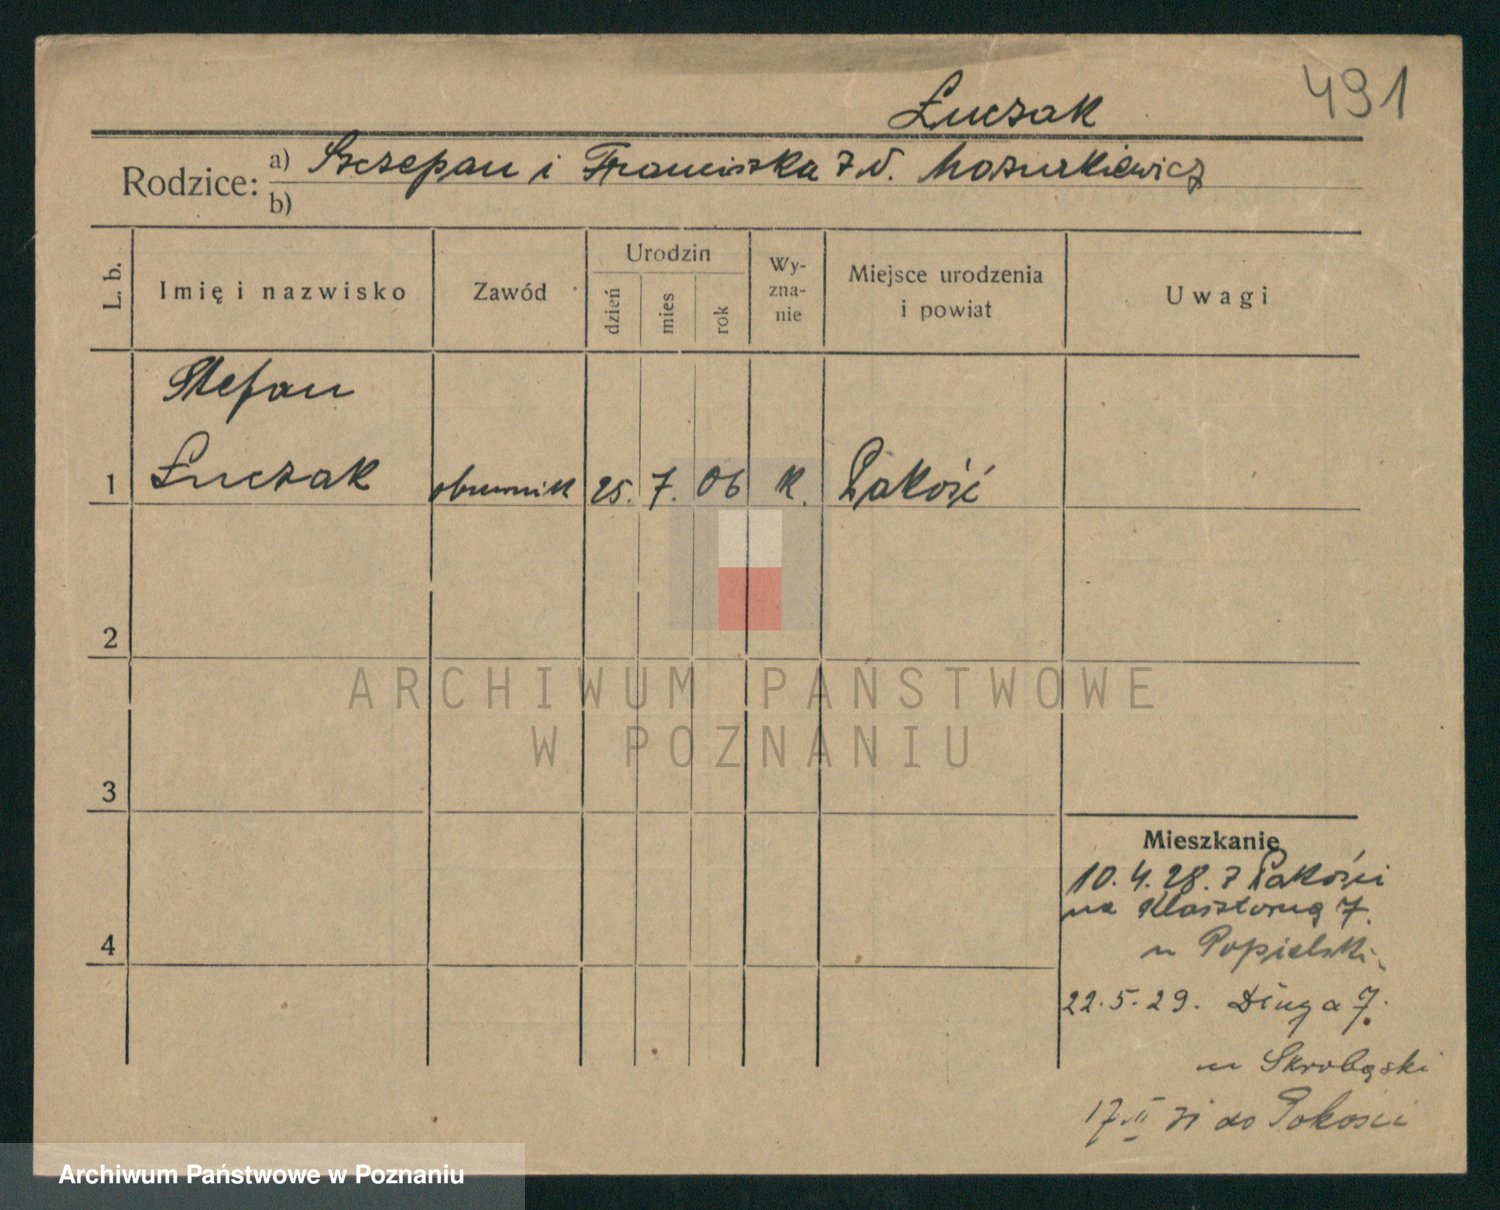 491
Łuczak
Rodzice: a) Szczepan i Franciszka z d. Mazurkiewicz
b)
L. b.
Imię i nazwisko
Zawód
Urodzin
dzień
mies
rok
Wy-
zna-
nie
Miejsce urodzenia
i powiat
Uwagi
Stefan
1 Łuczak obuwnik 25. 7. 06 k. Pakość
2
ARCHIWUM PAŃSTWOWE
W POZNANIU
3
Mieszkanie
10.4.28. z Pakości
na Klasztorną 7.
u Popielski
4
22.5.29. Długa 7.
u Skrobąski
17 31 do Pakości
Archiwum Państwowe w Poznaniu